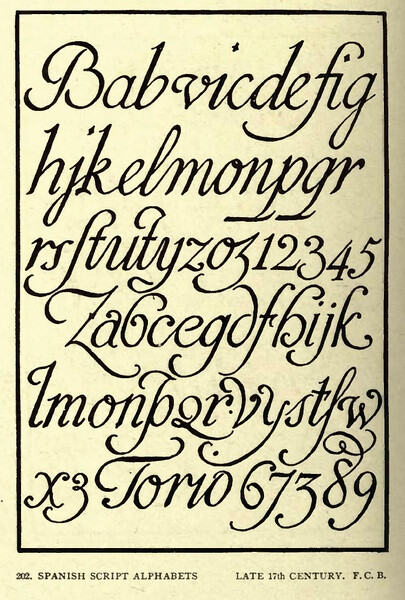 Babvicdefig
hjkelmonpqr
rsſtutyyzoz12345
Zabcegdfhijk
lmonpqr.vystſw
x3 Torio 67389
202. SPANISH SCRIPT ALPHABETS LATE 17th CENTURY. F. C. B.